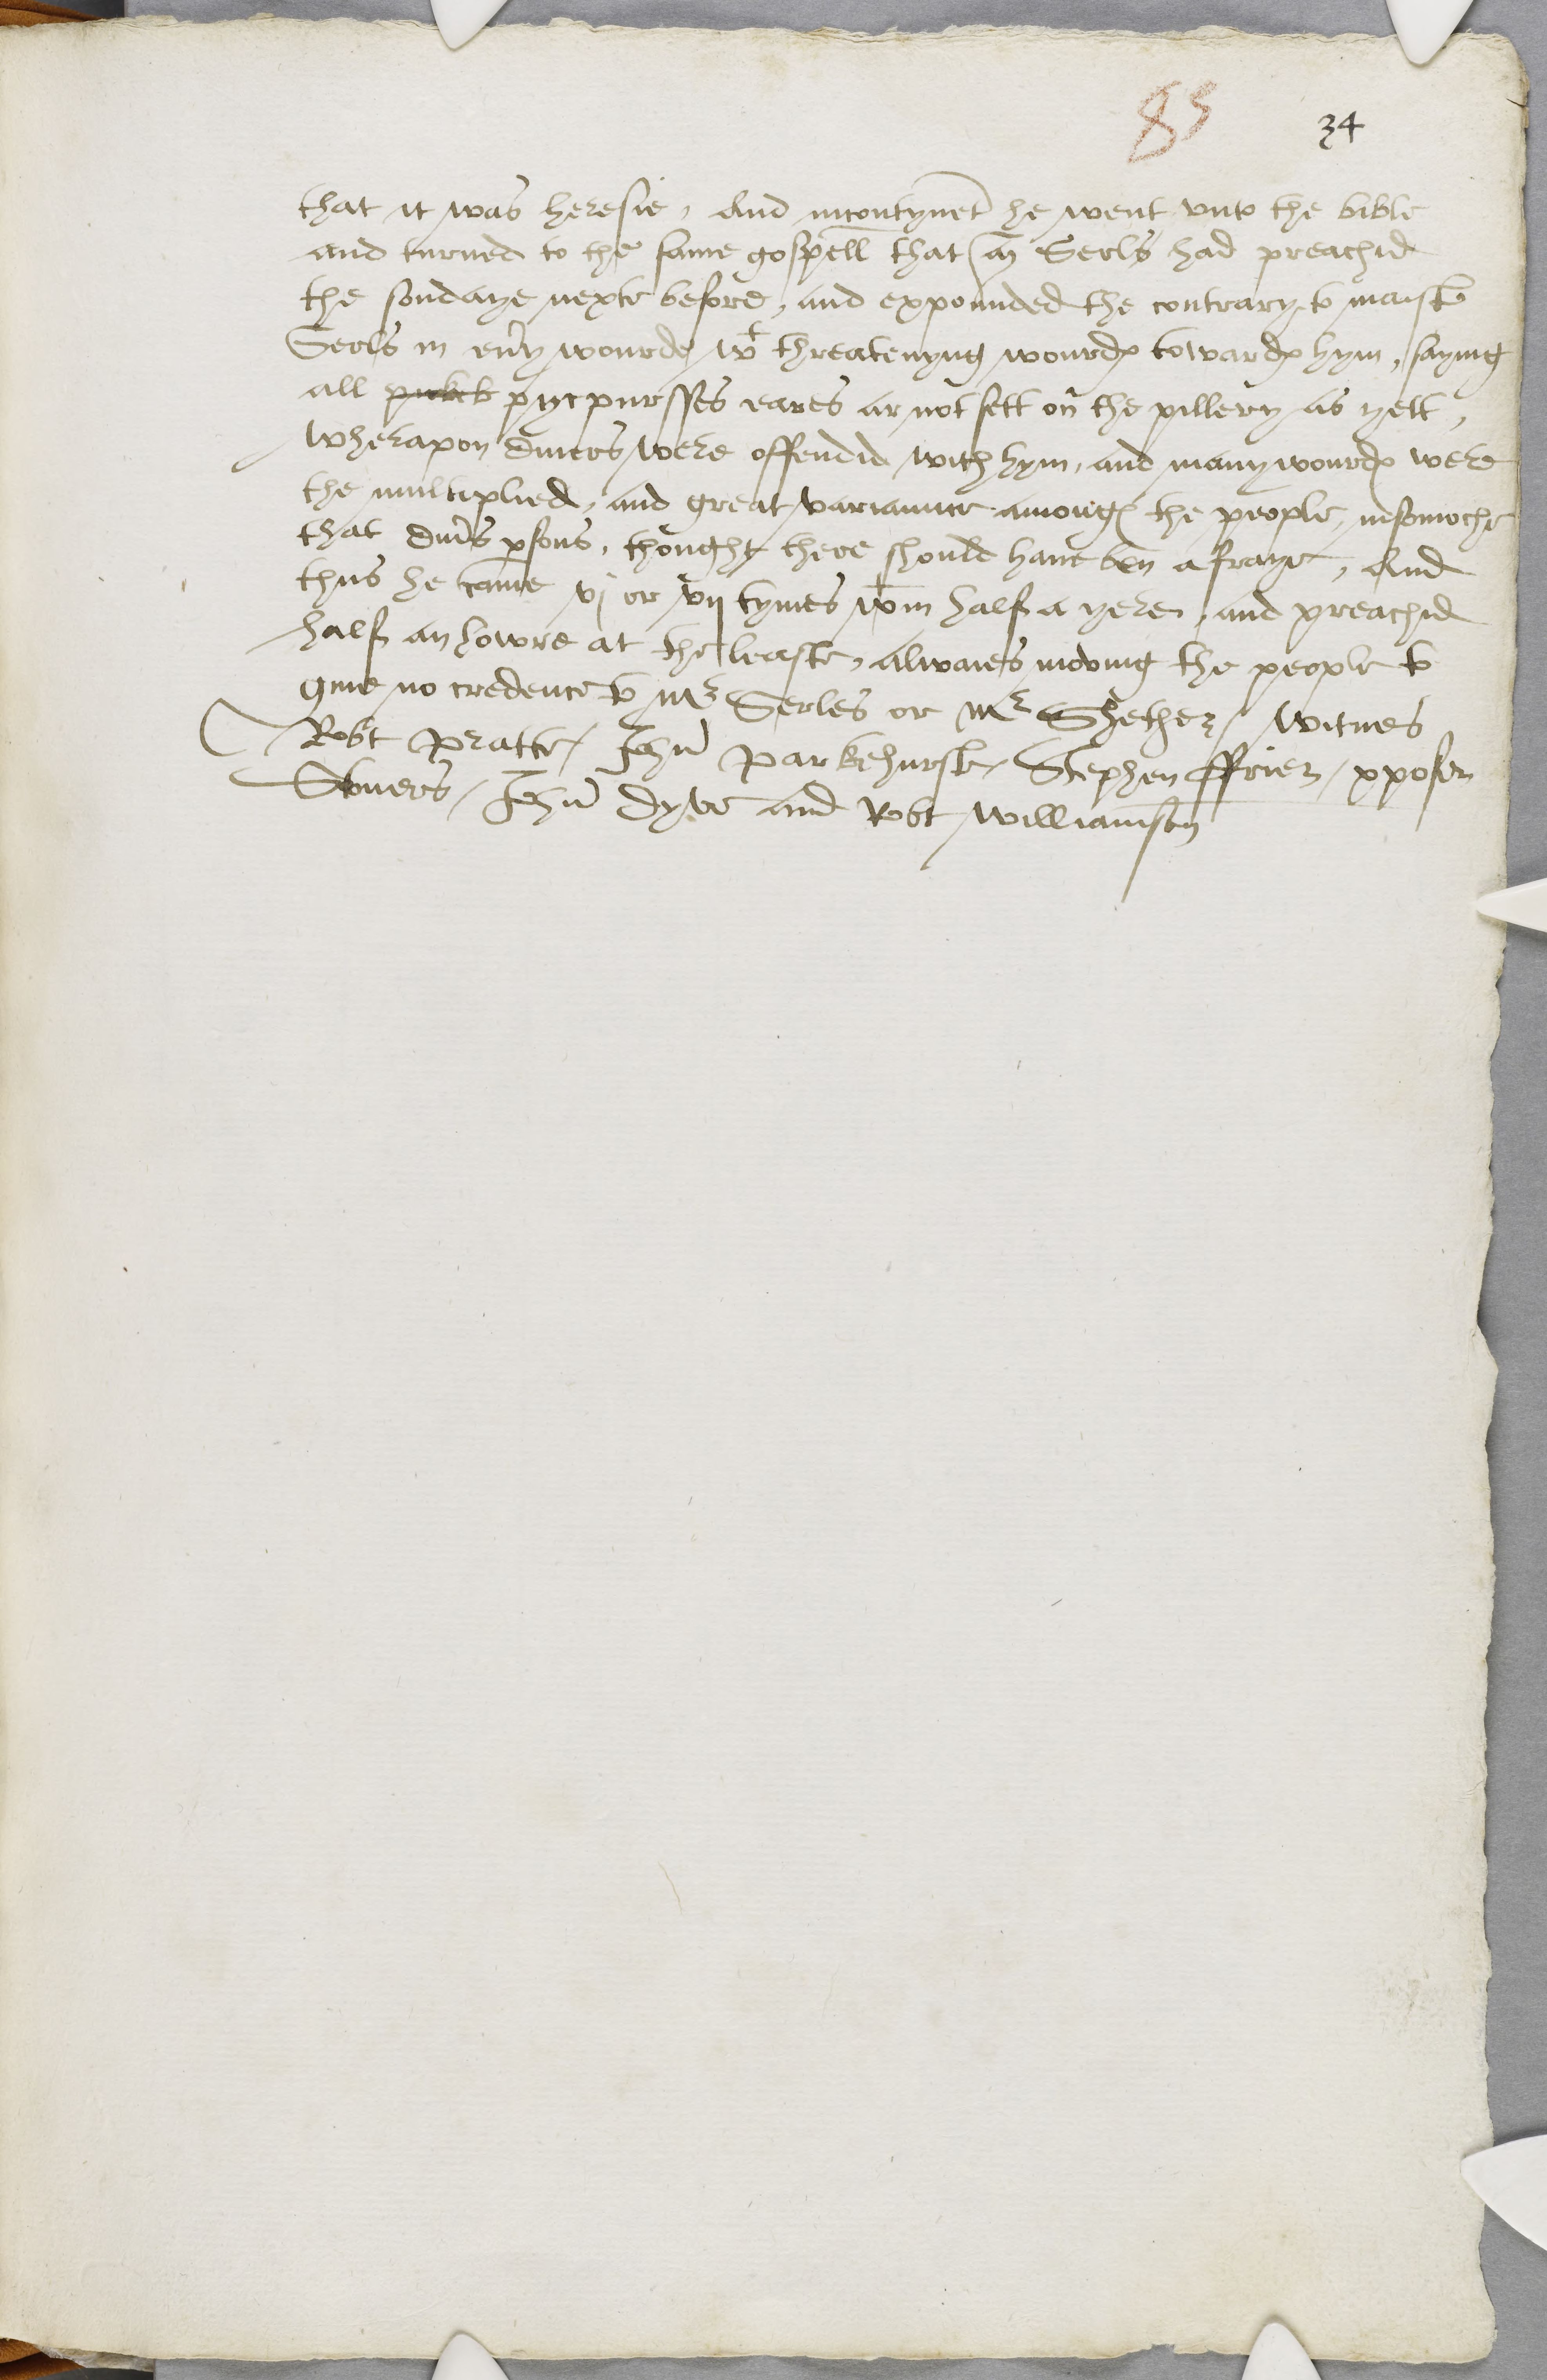 85 34
that it was heresie, And incontynet he went vnto the bible
and turned to the same gospell that Serls had preachid
the sondaye nexte before, and expounded the contrary to maist
Serls in eu'y wourde wt threatenyng wourdes towardes hym, sayng
all pycpursses eares ar not sett on the pillery as yett,
Wherapon diuers were offendid with hym, and many wourdes were
the multiplied, and great variaunce amonges the people, insomoche
that diu's psons, thought there should haue ben a fraye, And
thus he came vj or vij tymes wtin half a yere, and preachid
half an howre at the leaste, alwaies moving the people to
giue no credence to Mr Serles or Mr Shether / witnes
Robt Pratte / Jhn Parkehurste / Stephen ffrier / xpofer
Stuers / Jhn Dyte and Robt Williamson